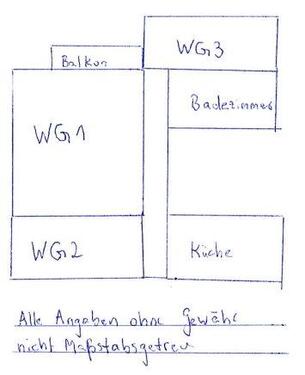 WG3
Balkon
Badezimmer
WG1
WG2
Küche
Alle Angaben ohne Gewähr
nicht Maßstabsgetreu